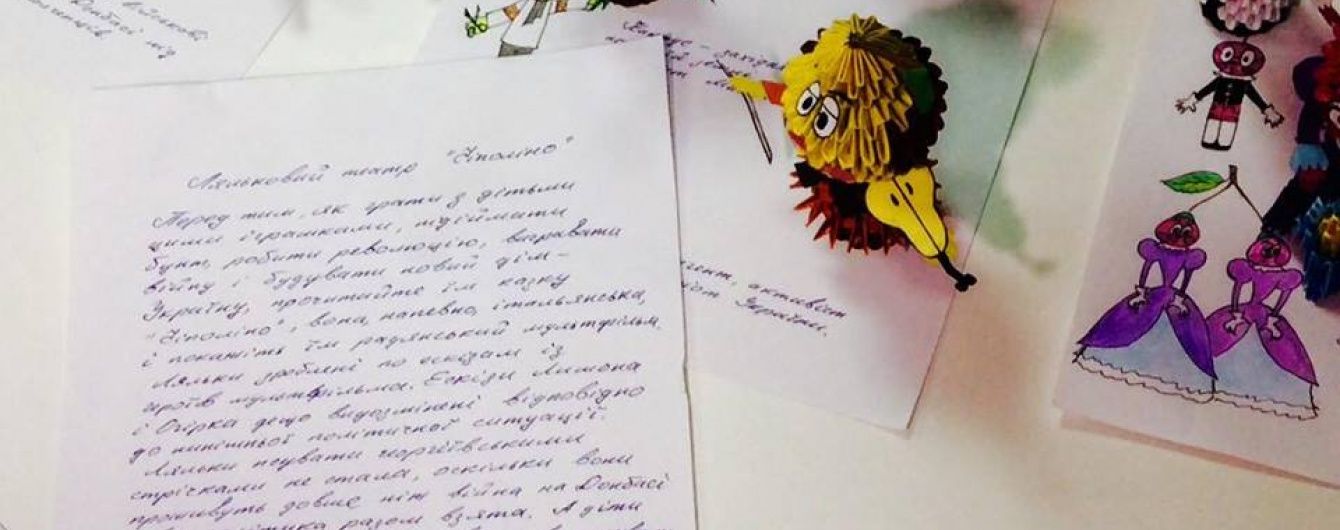 Ляльковий театр "Чіполіно"
Перед тим, як грати з дітьми
цими іграшками, підіймати
бунт, робити революцію, вигравати
війну і будувати новий дім –
Україну, прочитайте їм казку
"Чіполіно", вона, напевно, італьянська,
і покажіть їм радянський мультфільм.
Ляльки зроблені по ескізам із
героїв мультфільма. Ескізи Лимона
і Огірка дещо видозмінені відповідно
до нинішньої політичної ситуації.
Ляльки псувати георгіївськими
стрічками не стала, оскільки вони
проживуть довше ніж війна на Донбасі
разом взята. А діти
Донбасі під
активіст
України.